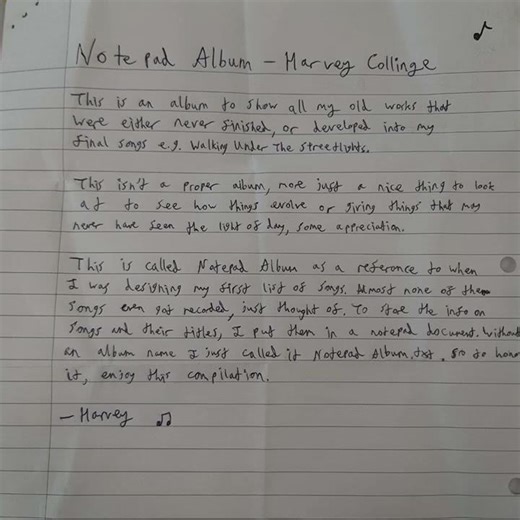 Notepad Album – Harvey Collinge
This is an album to show all my old works that
were either never finished, or developed into my
final songs e.g. Walking Under The Streetlights.
This isn't a proper album, more just a nice thing to look
at to see how things evolve or giving things that may
never have seen the light of day, some appreciation.
This is called Notepad Album as a reference to when
I was designing my first list of songs. Almost none of these
songs even got recorded, just thought of. To store the info on
songs and their titles, I put them in a notepad document. Without
an album name I just called it Notepad Album.txt. So to honor
it, enjoy this compilation.
– Harvey